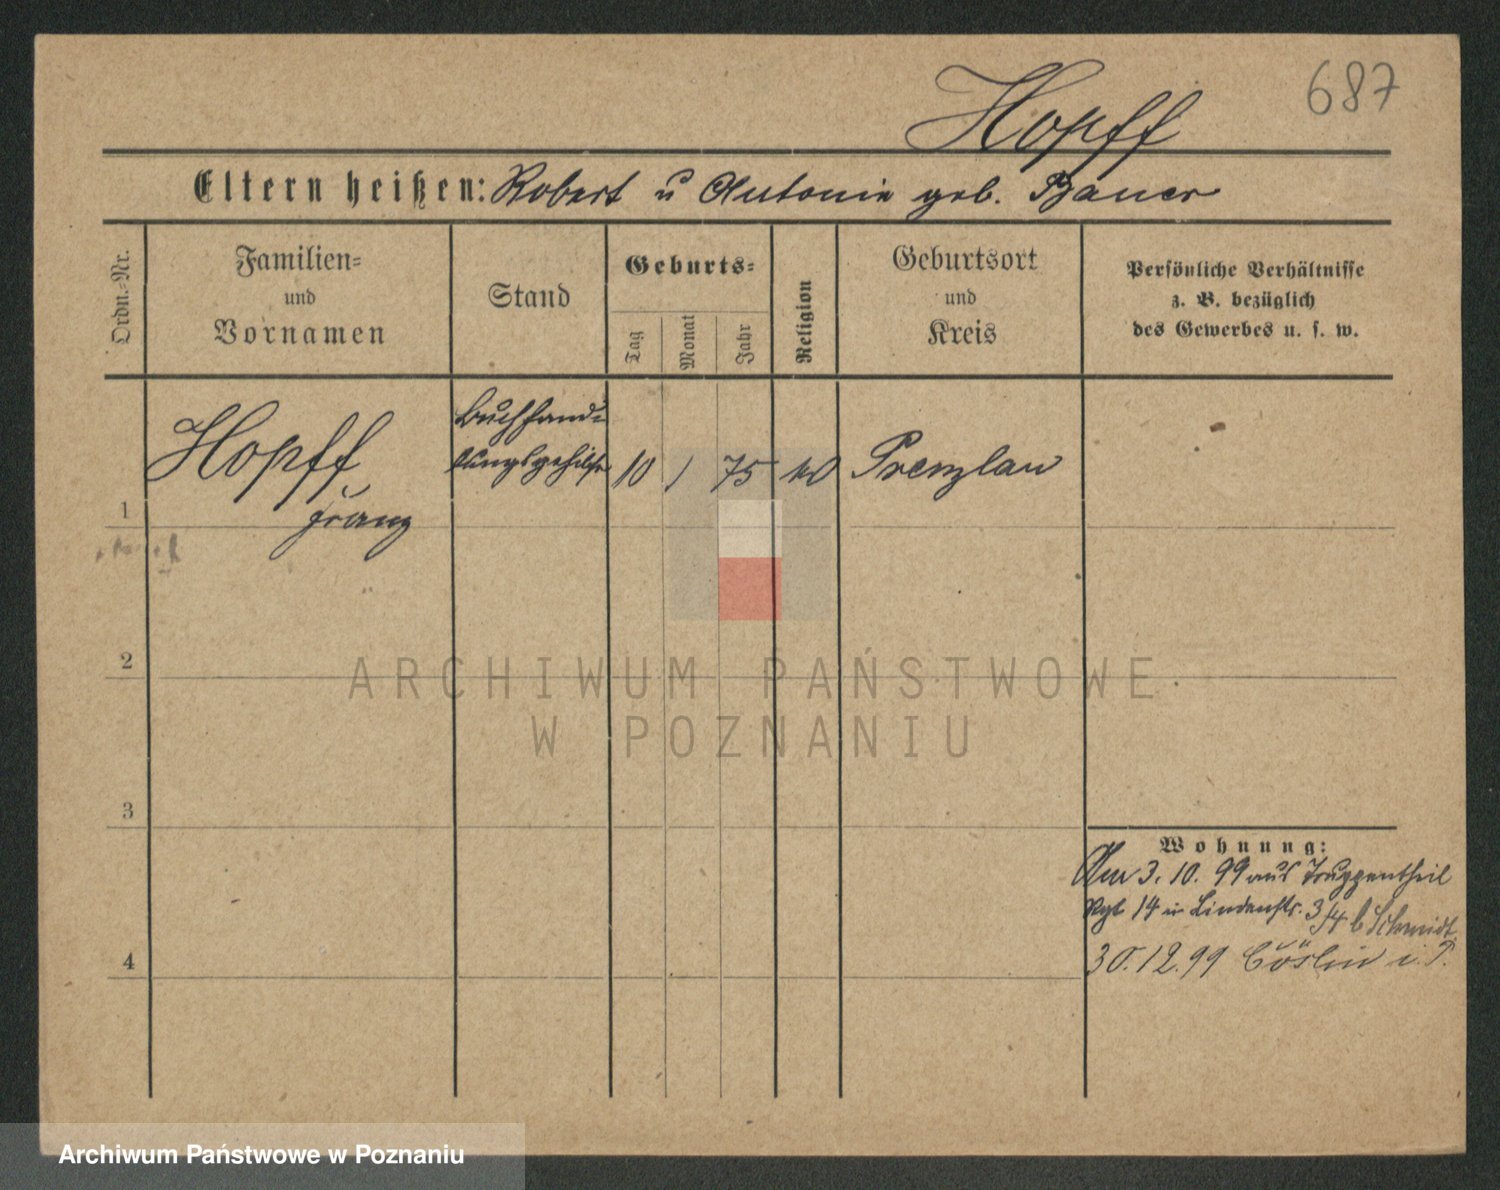 687
Hopff
Eltern heißen: Robert u Antonie geb. Bauer
Ordn.-Nr.
Familien-
und
Vornamen
Stand
Geburts-
Tag
Monat
Jahr
Religion
Geburtsort
und
Kreis
Persönliche Verhältnisse
z. B. bezüglich
des Gewerbes u. s. w.
1
Hopff
Franz
Buchhand-
lungsgehilfe
10
1
75
Prenzlau
2
3
4
Wohnung:
Am 3. 10. 99 aus Truppentheil
Rgt 14 in Lindenstr. 3/4 b Schmidt
30.12.99 Cöslin i. P.
ARCHIWUM PAŃSTWOWE
W POZNANIU
Archiwum Państwowe w Poznaniu